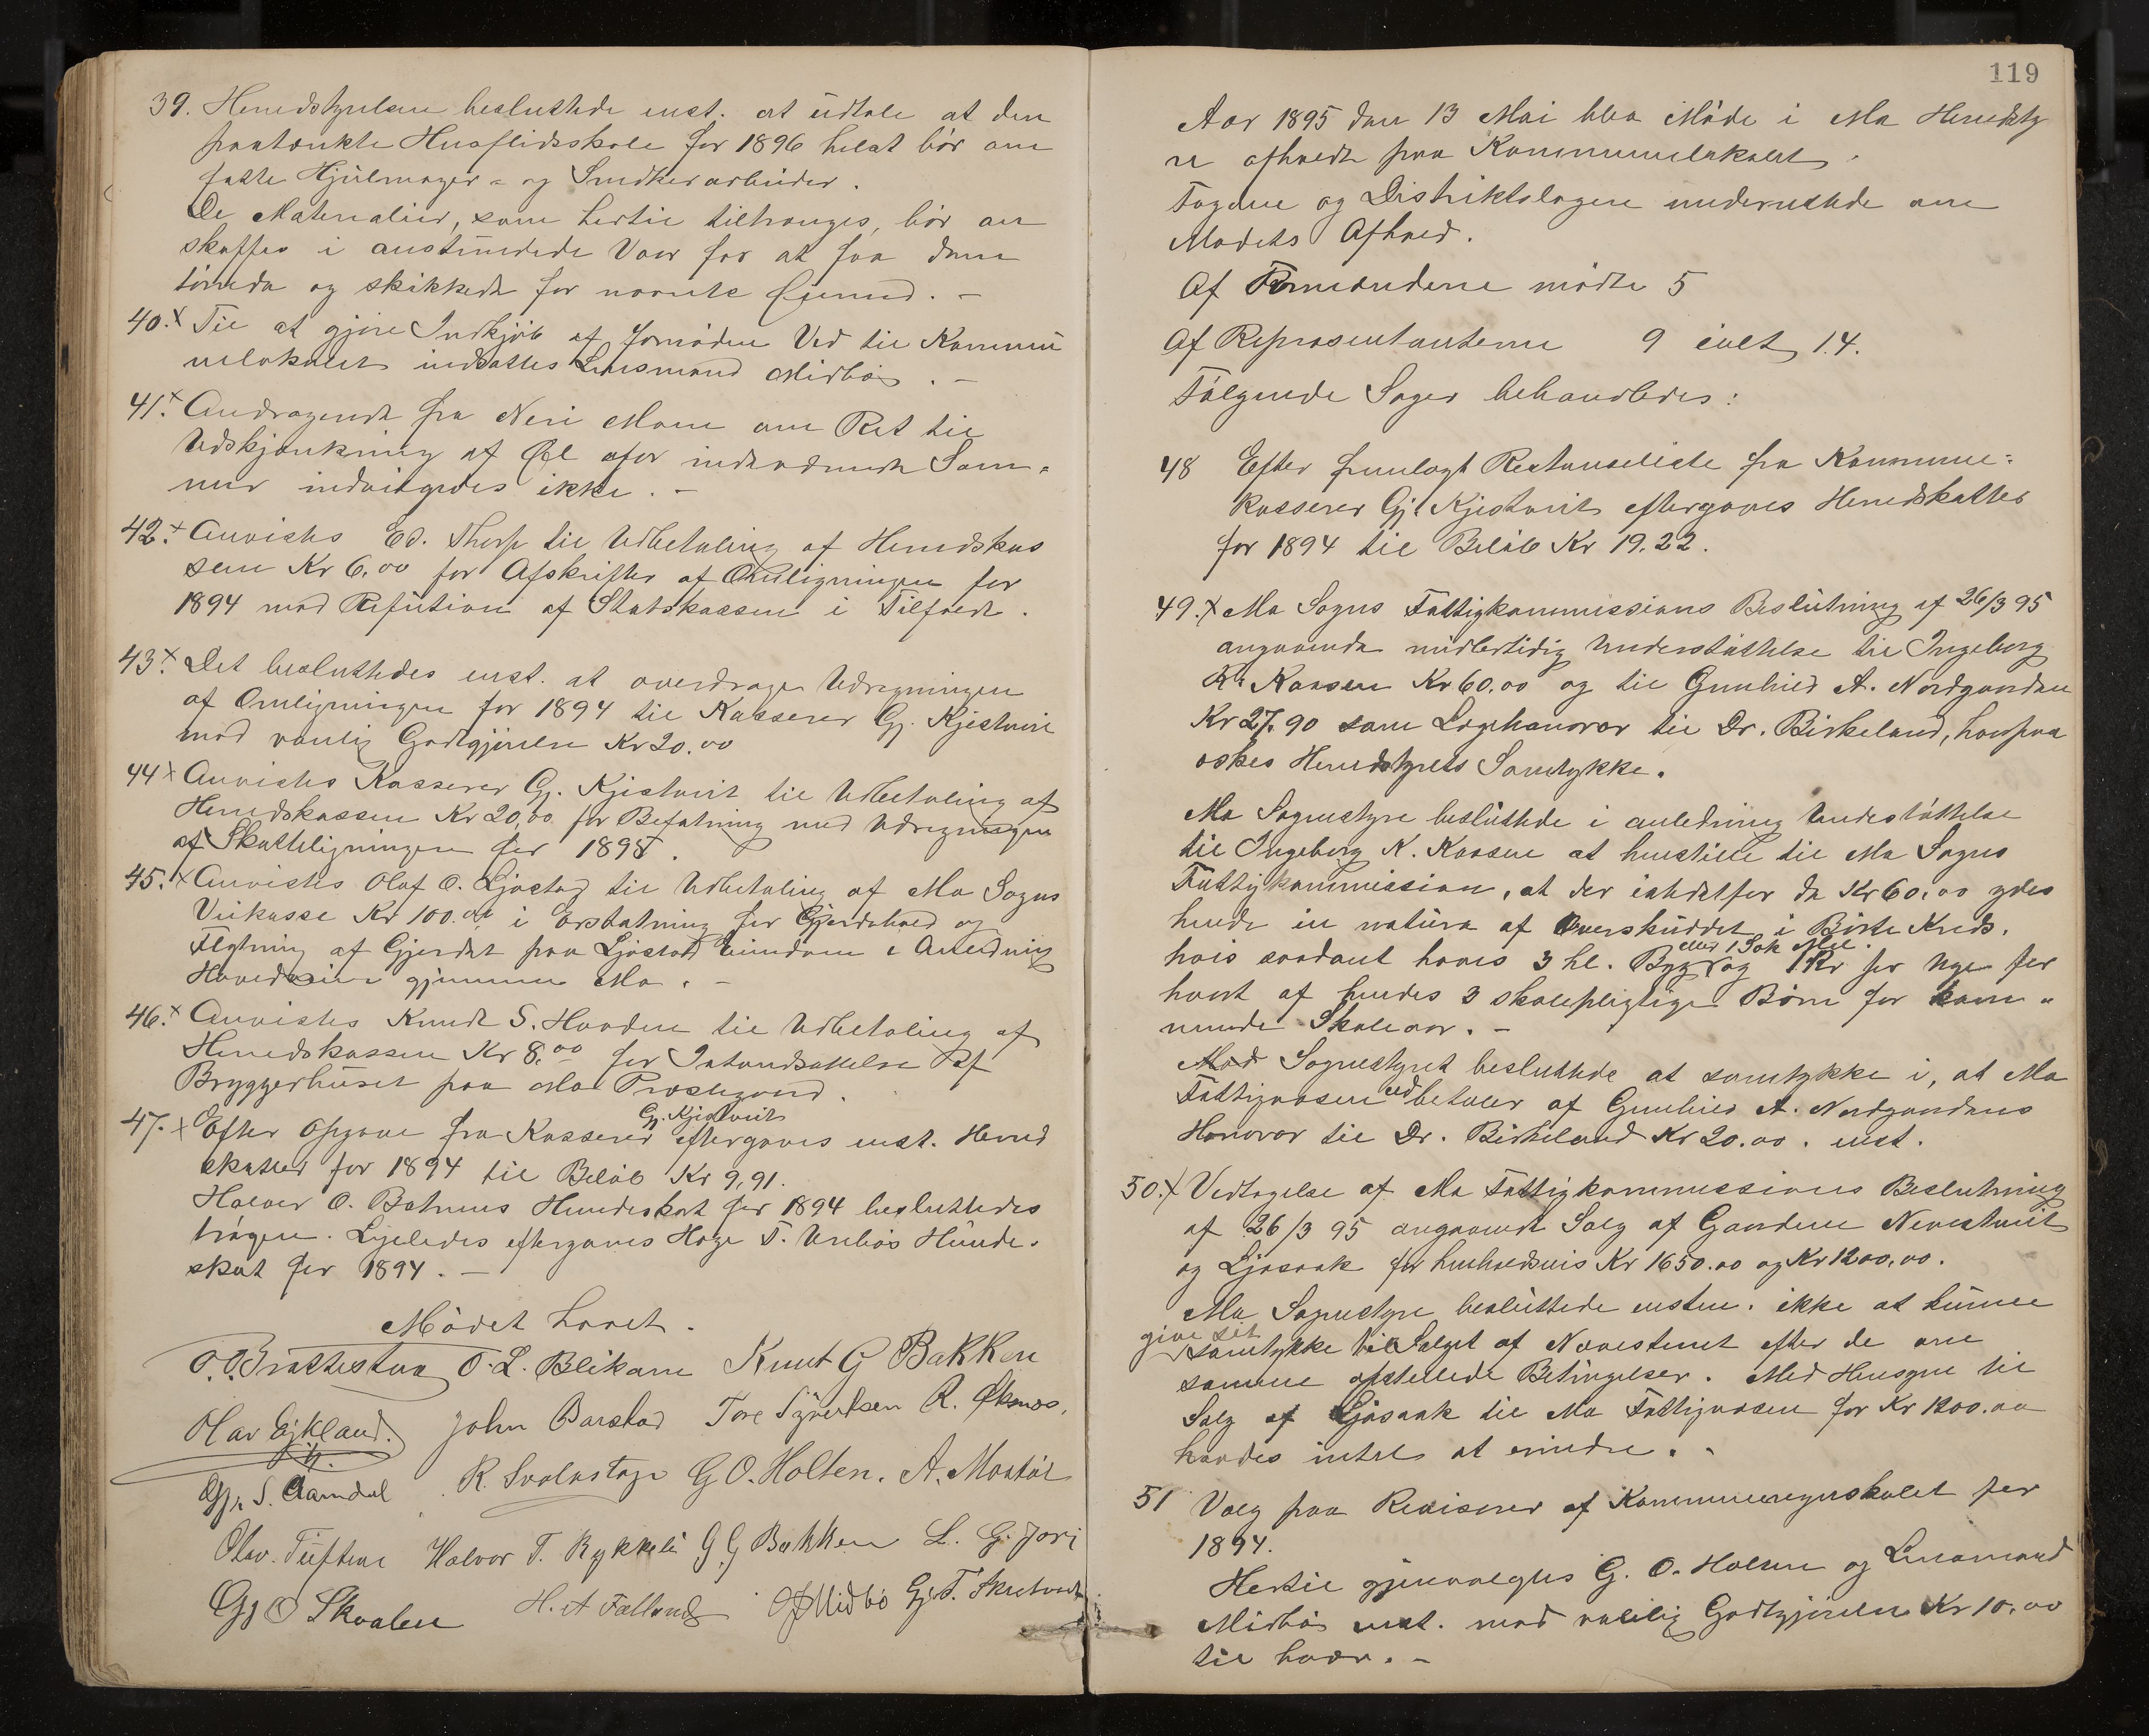 39. Herredstyrelsen besluttede enst. at udtale at den
paatænkte Husflidsskole for 1896 helst bør om
fatte Hjulmager- og Snedkerarbeider.
De Materialier, som hertil tiltrænges, bør an
skaffes i anstundede Vaar for at faa dem
tørrede og skikkede for nævnte Øiemed. -
40.x Til at gjøre Indkjøb af fornøden Ved til Kommu
nelokalet indsattes Lensmand Midbø. -
41.x Andragende fra Neri Moen om Ret til
Udskjænkning af Øl afor indeværende Som-
mer indvilgedes ikke. -
42.x Anvistes Ed. Thorp til Udbetaling af Herredskas
sen Kr 6,00 for Afskrifter af Omligningen for
1894 mod Refution af Statskassen i Tilfælde.
43.x Det besluttedes enst. at overdrage Udregningen
af Omligningen for 1894 til Kasserer Gj. Kjestveit
mod vanlig Godtgjørelse Kr 20.00
44 x Anvistes Kasserer Gj. Kjestveit til Udbetaling af
Herredskassen Kr 20,00 for Befatning med Udregningen
af Skatteligningen for 1895.
45.x Anvistes Olaf O. Ljøstad til Udbetaling af Mo Sogns
Veikasse Kr 100.00 i Erstatning for Gjerdehold og
Flytning af Gjerdet paa Ljøstad Eiendom i Anledning
Hovedveien gjennem Mo. -
46.x Anvistes Knudt S. Hovden til Udbetaling af
Herredskassen Kr 8.00 for Istandsættelse af
Bryggerhuset paa Mo Prestegaard.
47. x Efter Opgave fra Kasserer Gj. Kjestveit eftergaves enst. Herred
skatter for 1894 til Beløb Kr 9,91.
Halvor O. Botnens Hundeskat for 1894 besluttedes
frågaa. Ligeledes eftergaves Hoge T. Urebøs Hunde-
skat for 1894. -
Mødet hævet.
O. O. Brattestaa T. L. Blikom Knut G Bakken
Olav Eikland. John Barstad Tore Sjvertsen R. Øksnes,
Gj. S. Aamdal R. Svalastoge G O. Holten. A. Mostøl
Olav. Tuftene Halvor T. Rykkeli G G Bakken L. G. Jori
Gj O Skvalen H. A Fælland O J Midbø Gj. T. Skretveit
119
Aar 1895 den 13 Mai blev Møde i Mo Herredsty
re afholdt paa Kommunelokalet.
Fogden og Distriktslægen underrettede om
Mødets Afhold.
Af Formændene mødte 5
Af Repræsentanterne 9 ialt 14.
Følgende Sager behandledes:
48 Efter fremlagt Restanseliste fra Kommune-
kasserer Gj. Kjestveit eftergaves Herredskatter
for 1894 til Beløb Kr 19,22.
49. x Mo Sogns Fattigkommissions Beslutning af 26/3 95
angaaende midlertidig Understøttelse til Ingeborg
K. Kaasen Kr 60.00 og til Gunhild A. Nordgaarden
Kr 27.90 som Lægehonorar til Dr. Birkeland, hvorpaa
øskes Herredstyrets Samtykke.
Mo Sognestyre besluttede i anledning Understøttelse
til Ingeborg K. Kaasen at henstille til Mo Sogns
Fattigkommission, at der istedetfor de Kr 60.00 ydes
hende in natura af Overskuddet i Børte Kreds,
hvis saadant haves 3 hl. Byg eller 1 Sæk Mel. og 1 Kr pr Uge for
hvert af hendes 3 skolepligtige Børn for kom-
mende Skoleaar. -
Mod Sognestyret besluttede at samtykke i, at Mo
Fattigvæsen udbetaler af Gunhild A. Nordgaardens
Honorar til Dr. Birkeland Kr 20.00. enst.
50. x Vedtagelse af Mo Fattigkommissions Beslutning
af 26/3 95 angaaende Salg af Gaardene Nevestveit
og Ljosaak for henholdsvis Kr 1650.00 og Kr 1200.00.
Mo Sognestyre besluttede enstem. ikke at kunne
give sit Samtykke til Salget af Nevestveit efter de om
samme opstillede Betingelser. Med Hensyn til
Salg af Ljosaak til Mo Fattigvæsen for Kr 1200.00
havdes intet at erindre. -
51 Valg paa Revisorer af Kommuneregnskabet for
1894.
Hertil gjenvalgtes G. O. Holten og Lensmand
Midbø enst. mod vanlig Godtgjørelse Kr 10.00
til hver. -